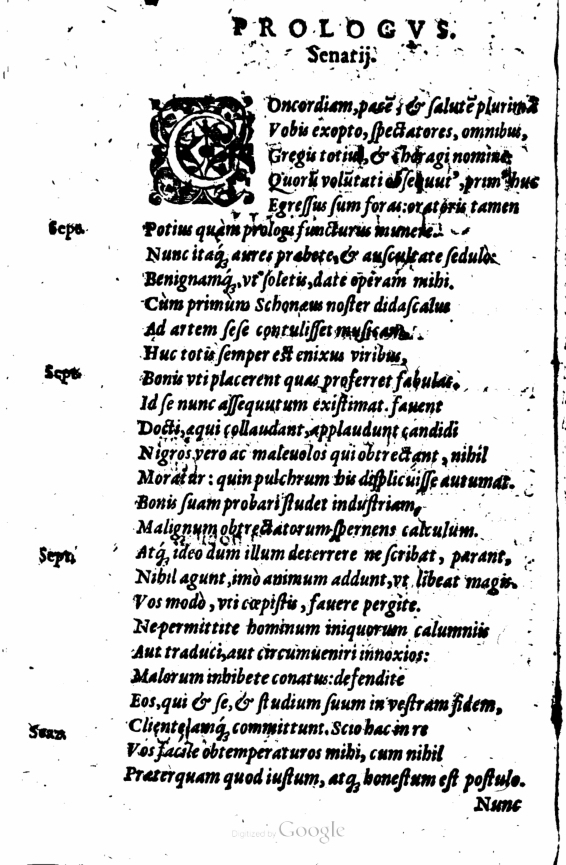 PROLOGVS.
Senarij.
COncordiam, pacē, & salutē plurimā
Vobis exopto, spectatores, omnibus,
Gregis totius, & choragi nomine
Quorū volūtati obsequut', prim' huc
Egressus sum foras: oratoris tamen
Sept. Potius quàm prologi functurus munere.
Nunc itaq; aures prabete, & auscultate sedulò:
Benignamq; vt soletis, date operam mihi.
Cùm primùm Schonæus noster didascalus
Ad artem sese contulisset musicam:
Huc totis semper est enixus viribus,
Sept. Bonis vti placerent quas proferret fabulas.
Id se nunc assequutum existimat. fauent
Docti, æqui collaudant, applaudunt candidi
Nigros vero ac maleuolos qui obtrectant, nihil
Moratur: quin pulchrum his displicuisse autumat.
Bonis suam probari studet industriam,
Malignum obtrectatorum spernens calculum.
Sept. Atq; ideo dum illum deterrere ne scribat, parant,
Nihil agunt, imò animum addunt, vt libeat magis.
Vos modò, vti cœpistis, fauere pergite.
Ne permittite hominum iniquorum calumniis
Aut traduci, aut circumueniri innoxios:
Malorum inhibete conatus: defendite
Eos, qui & se, & studium suum in vestram fidem,
Clientelamq; committunt. Scio hac in re
Vos facile obtemperaturos mihi, cum nihil
Præterquam quod iustum, atq; honestum est postulo.
Nunc
Digitized by Google